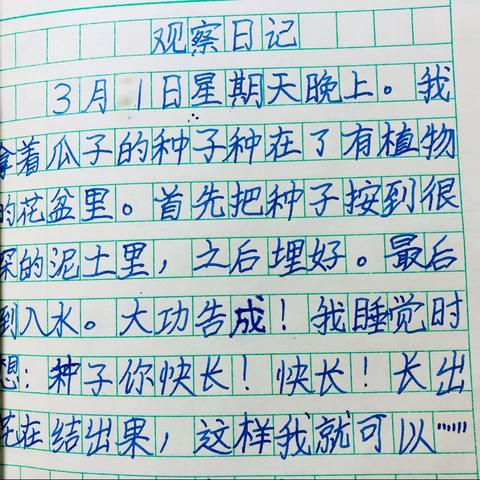 观察日记
3月1日星期天晚上。我
拿着瓜子的种子种在了有植物
的花盆里。首先把种子按到很
深的泥土里，之后埋好。最后
到入水。大功告成！我睡觉时
想：种子你快长！快长！长出
花在结出果，这样我就可以……